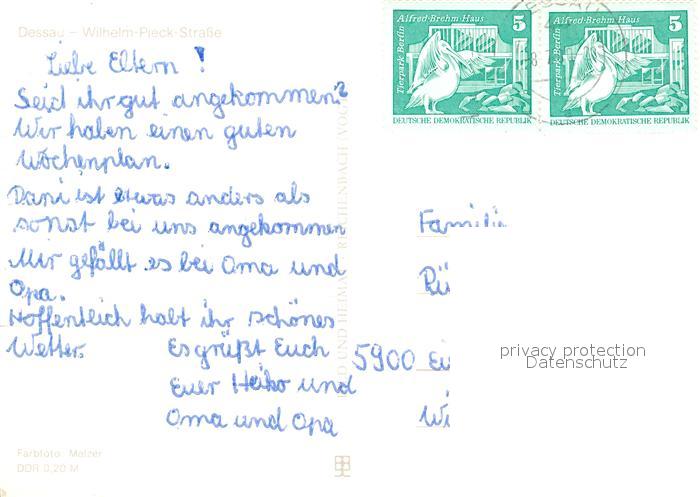 Dessau – Wilhelm-Pieck-Straße
Liebe Eltern !
Seid ihr gut angekommen?
Wir haben einen guten
Wochenplan.
Dani ist etwas anders als
sonst bei uns angekommen
Mir gefällt es bei Oma und
Opa.
Hoffentlich habt ihr schönes
Wetter.
Es grüßt Euch
Euer Heiko und
Oma und Opa
Farbfoto: Malzer
DDR 0,20 M
Alfred-Brehm Haus 5
Tierpark Berlin
DEUTSCHE DEMOKRATISCHE REPUBLIK
Alfred-Brehm Haus 5
Tierpark Berlin
DEUTSCHE DEMOKRATISCHE REPUBLIK
Familie
5900
privacy protection
Datenschutz